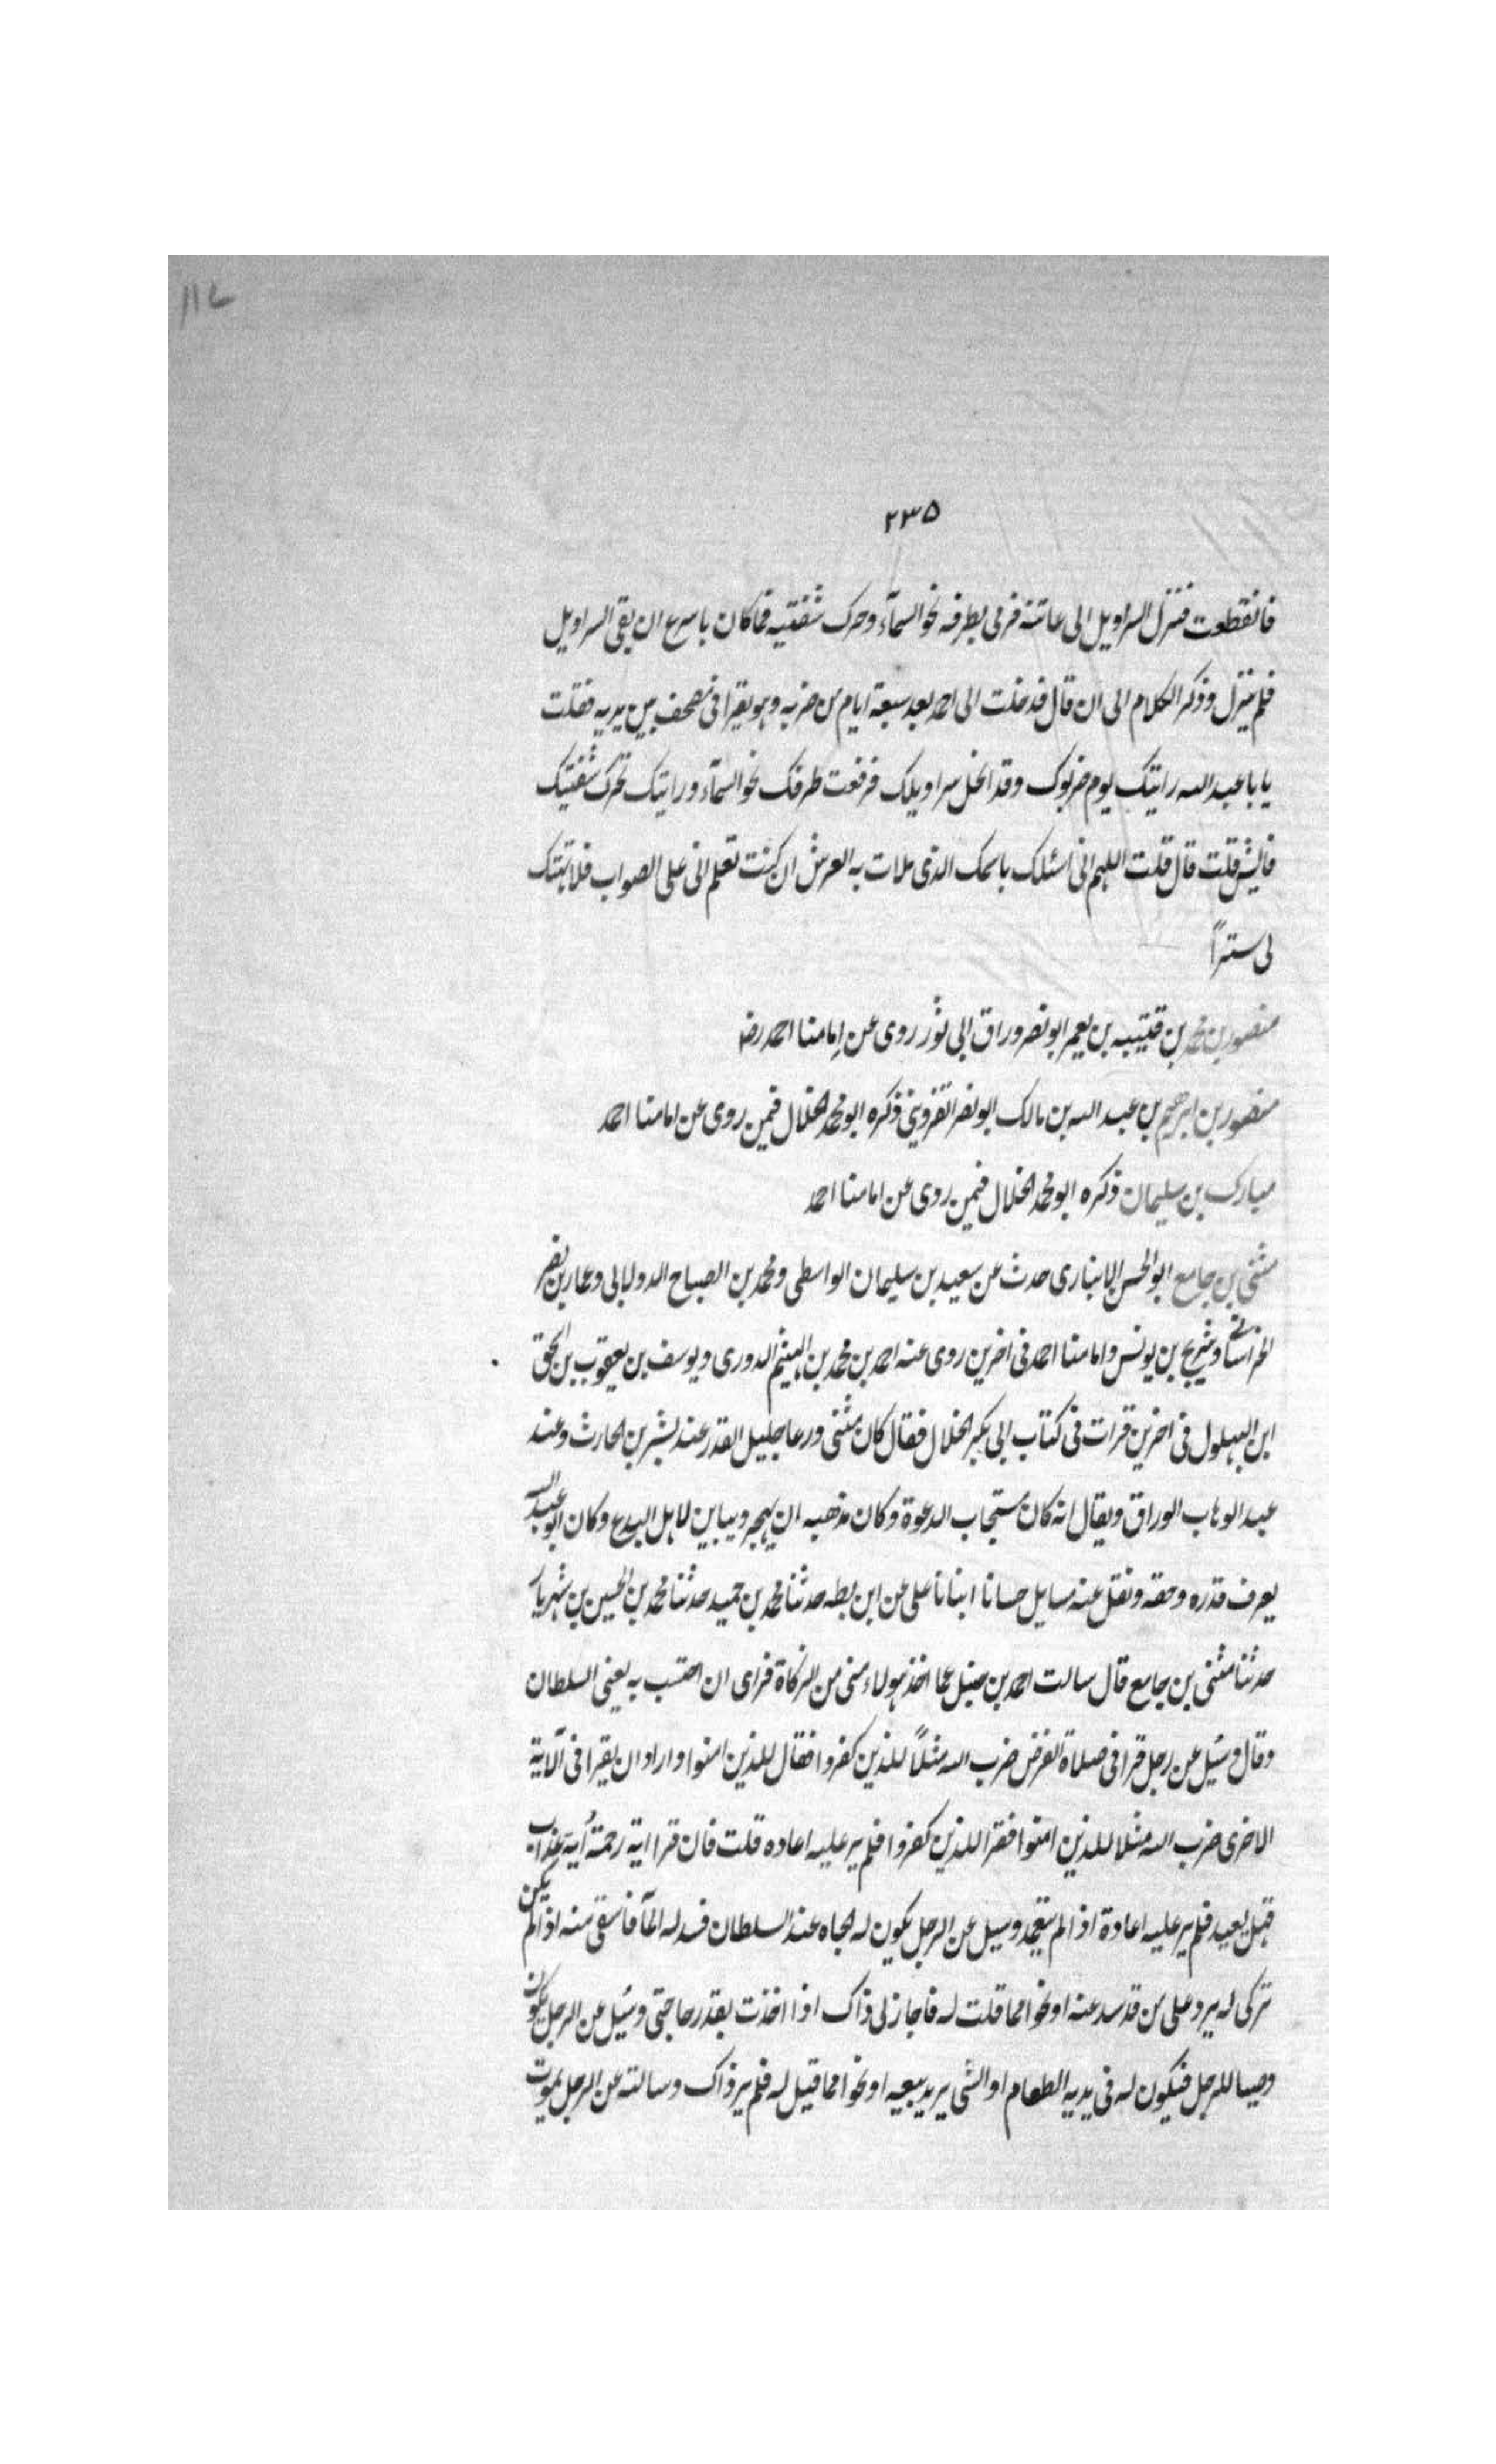 ١١٧
٢٣٥
فانقطعت فنزل السراويل الى عانته فرمى بطرفه نحو السمآء وحرك شفتيه فما كان باسرع ان بقى السراويل
فلم ينزل وذكر الكلام الى ان قال فدخلت الى احمد بعد سبعة ايام من ضربه وهو يقرا فى مصحف بين يديه فقلت
يا با عبد الله رايتك يوم ضربوك وقد انحل سراويلك فرفعت طرفك نحو السمآء ورايتك تحرك شفتيك
فايش قلت قال قلت اللهم انى اسئلك باسمك الذى ملات به العرش ان كنت تعلم انى على الصواب فلا تهتك
لى ستراً
منصور بن محمد بن قتيبه بن يعمر ابو نصر وراق ابى ثور روى عن امامنا احمد رضـ
منصور بن ابرهيم بن عبد الله بن مالك ابو نصر القزوينى ذكره ابو محمد الخلال فيمن روى عن امامنا احمد
مبارك بن سليمان ذكره ابو محمد الخلال فيمن روى عن امامنا احمد
مثنى بن جامع ابو الحسن الانبارى حدث عن سعيد بن سليمان الواسطى ومحمد بن الصباح الدولابى وعمار بن نصر
الخراسانى وشريح بن يونس وامامنا احمد فى اخرين روى عنه احمد بن محمد بن الهيثم الدورى ويوسف بن يعقوب بن اسحق
ابن البهلول فى اخرين قرات فى كتاب ابى بكر الخلال فقال كان مثنى ورعا جليل القدر عند بشر بن الحارث وعند
عبد الوهاب الوراق ويقال انه كان مستجاب الدعوة وكان مذهبه ان يهجر ويباين لاهل البدع وكان ابو عبد الله
يعرف قدره وحقه ونقل عنه مسايل حسانا انبانا على عن ابن بطه حدثنا محمد بن حميد حدثنا محمد بن الحسين بن شهريار
حدثنا مثنى بن جامع قال سالت احمد بن حنبل عما اخذ هولاء منى من الزكاة فراى ان احتسب به يعنى السلطان
وقال وسئل عن رجل قرا فى صلاة الفرض ضرب الله مثلاً للذين كفروا فقال للذين امنوا واراد ان يقرا فى الآية
الاخرى ضرب الله مثلا للذين امنوا فقرا للذين كفروا فلم ير عليه اعاده قلت فان قرا اية رحمة اية عذاب
قبل يعيد فلم ير عليه اعادة اذا لم يتعمد وسيل عن الرجل يكون له الجاه عند السلطان فسد له المآ فاسقى منه اذا لم يكن
تركى له يرد على من قد سد عنه او نحوا مما قلت له فاجاز لى ذاك اذا اخذت بقدر حاجتى وسئل عن الرجل يكون
وصيا للرجل فيكون له فى يديه الطعام او الشى يريد بيعه او نحوا مما قيل له فلم ير ذاك وسالته عن الرجل يموت